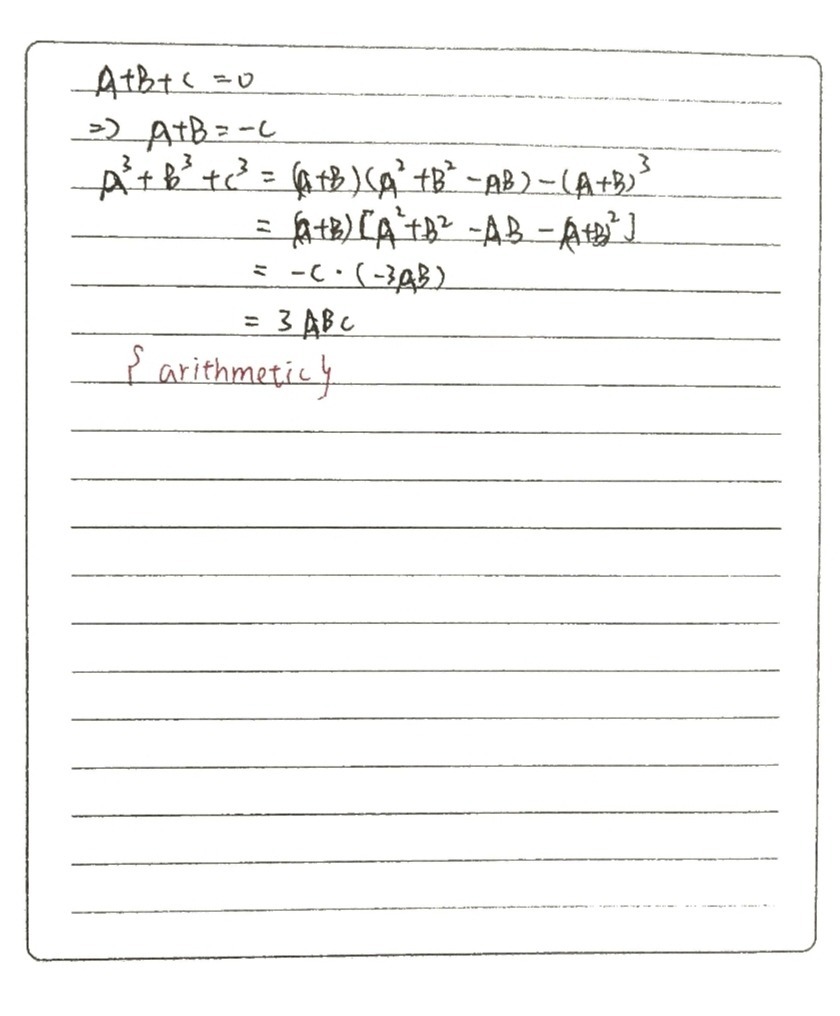 A+B+C=0
=> A+B=-C
A³+B³+C³ = (A+B)(A²+B²-AB)-(A+B)³
= (A+B)[A²+B²-AB-(A+B)²]
= -C·(-3AB)
= 3ABC
{arithmetic}